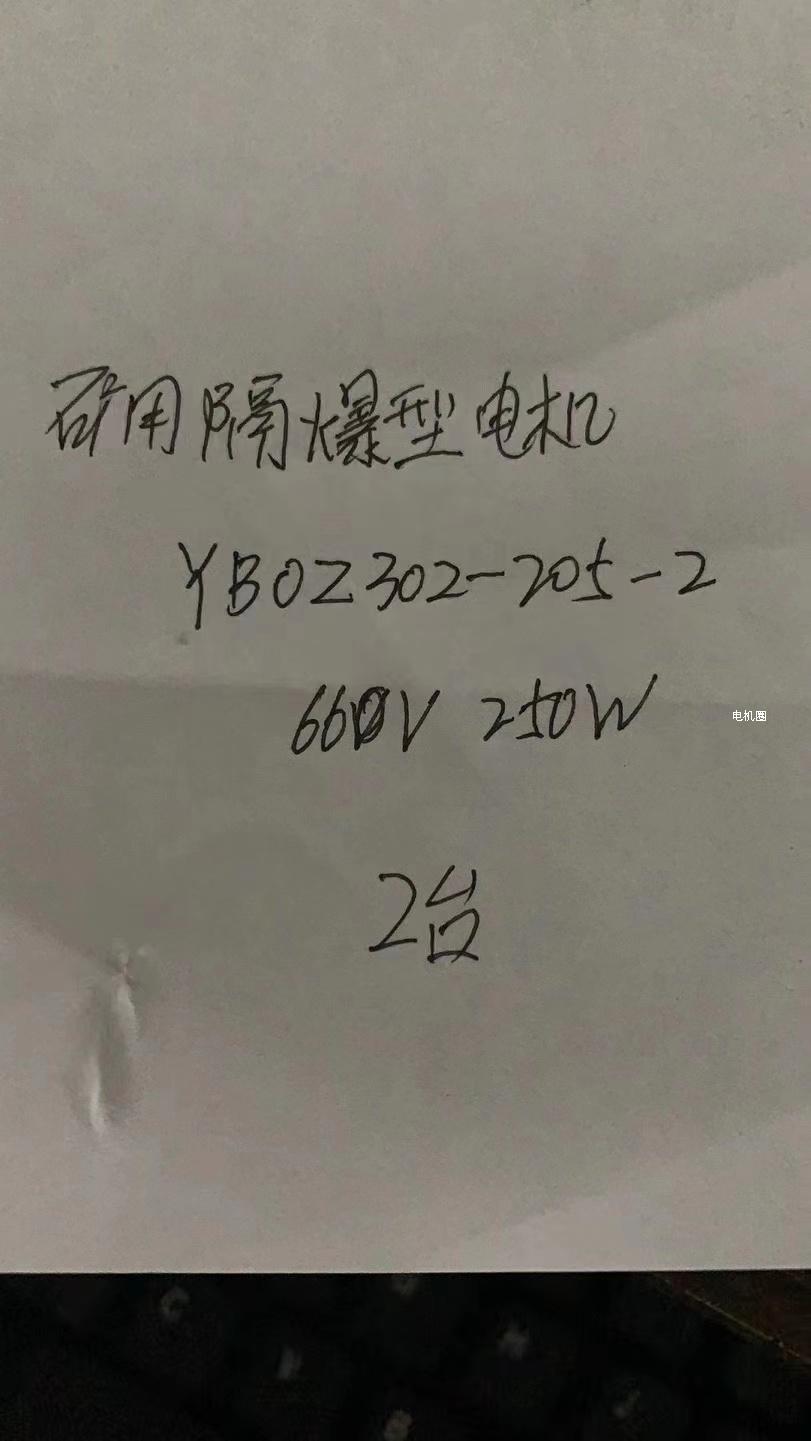 矿用隔爆型电机
YBOZ302-205-2
660V 250W
电机圈
2台